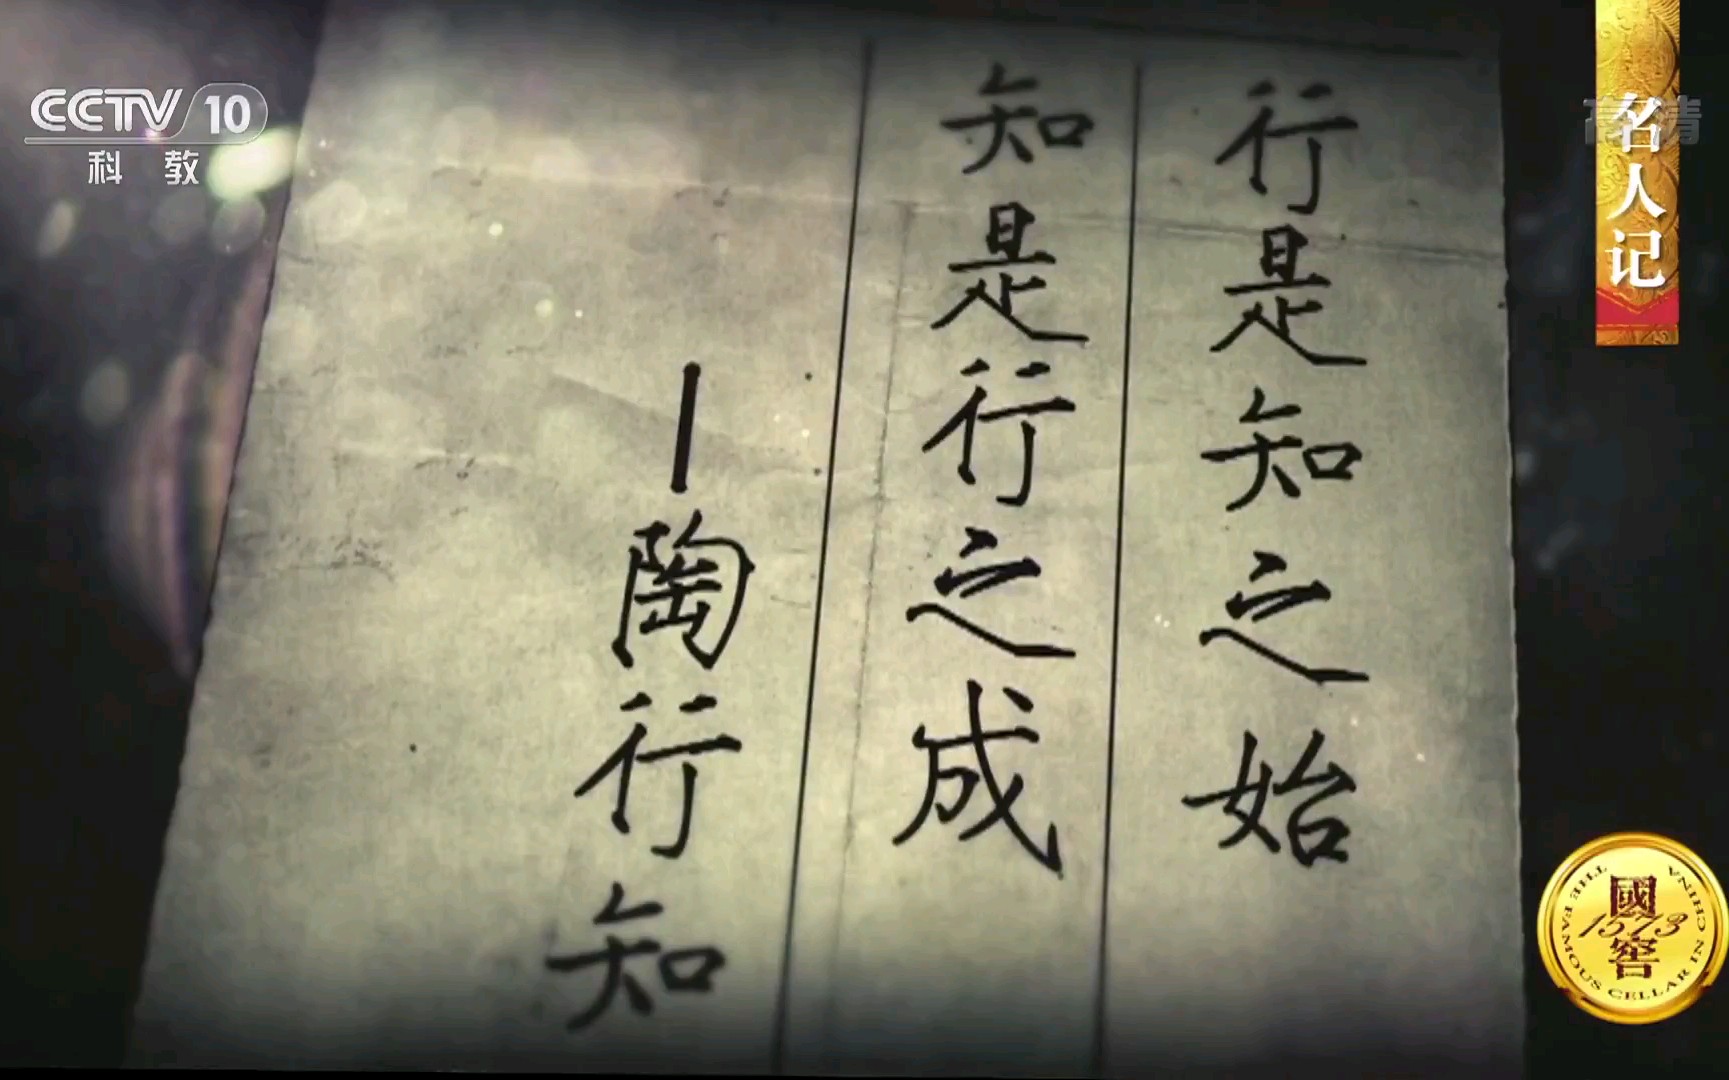 CCTV 10
科教
高清
名人记
行是知之始
知是行之成
—陶行知
THE FAMOUS CELLAR IN CHINA
國窖
1573